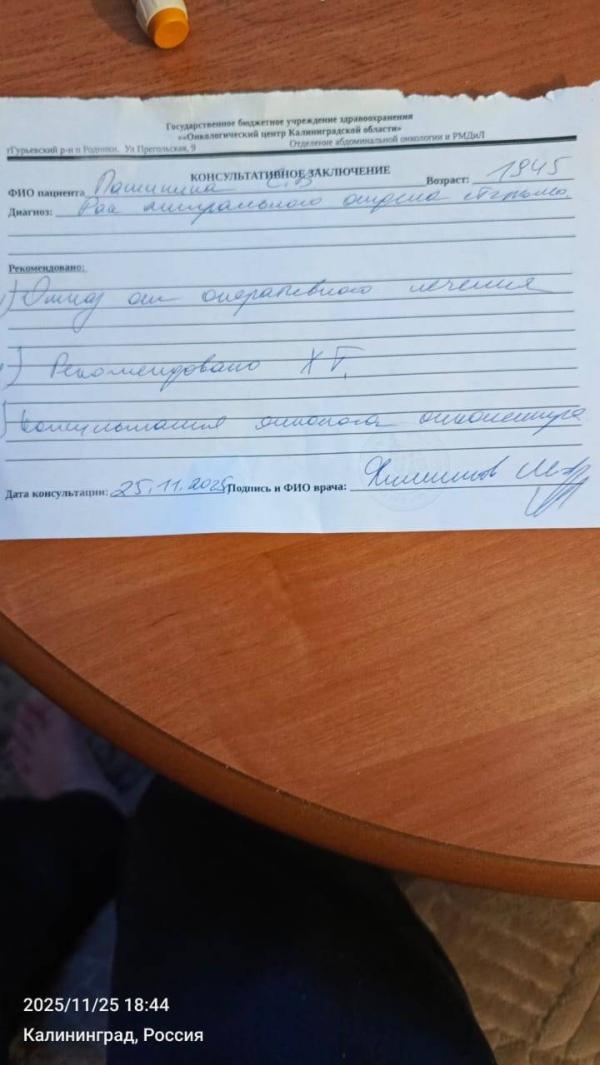 Государственное бюджетное учреждение здравоохранения
«»Онкологический центр Калининградской области»
гГурьевский р-н п Родники. Ул Прегольская, 9 Отделение абдоминальной онкологии и РМДиЛ
КОНСУЛЬТАТИВНОЕ ЗАКЛЮЧЕНИЕ
ФИО пациента С.В Возраст: 1945
Диагноз: Рак отдела
Рекомендовано:
1) Отказ от оперативного лечения
) Рекомендовано ХТ,
) консультация онколога
Дата консультации: 25.11.2025 Подпись и ФИО врача:
2025/11/25 18:44
Калининград, Россия